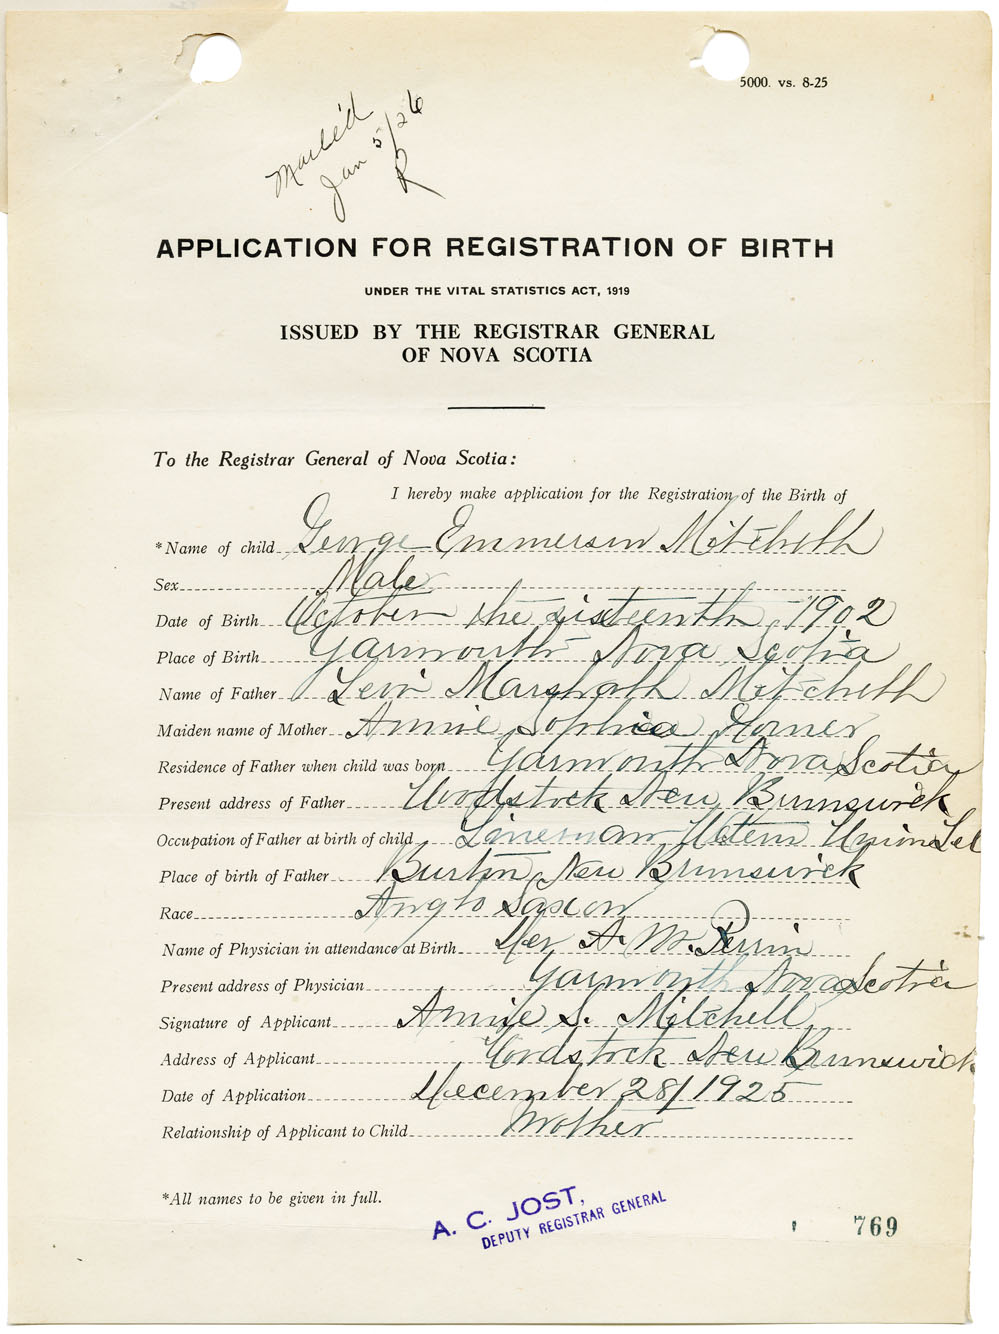 5000. vs. 8-25
Mailed
Jan 5/26
R
APPLICATION FOR REGISTRATION OF BIRTH
UNDER THE VITAL STATISTICS ACT, 1919
ISSUED BY THE REGISTRAR GENERAL
OF NOVA SCOTIA
To the Registrar General of Nova Scotia:
I hereby make application for the Registration of the Birth of
*Name of child George Emmerson Mitchell
Sex Male
Date of Birth October the sixteenth, 1902
Place of Birth Yarmouth Nova Scotia
Name of Father Levi Marshall Mitchell
Maiden name of Mother Annie Sophia Horner
Residence of Father when child was born Yarmouth Nova Scotia
Present address of Father Woodstock New Brunswick
Occupation of Father at birth of child Lineman Western Union Tel
Place of birth of Father Burton New Brunswick
Race Anglo Saxon
Name of Physician in attendance at Birth A. M. Perrin
Present address of Physician Yarmouth Nova Scotia
Signature of Applicant Annie S. Mitchell
Address of Applicant Woodstock New Brunswick
Date of Application December 28/1925
Relationship of Applicant to Child Mother
*All names to be given in full.
A. C. JOST,
DEPUTY REGISTRAR GENERAL
769